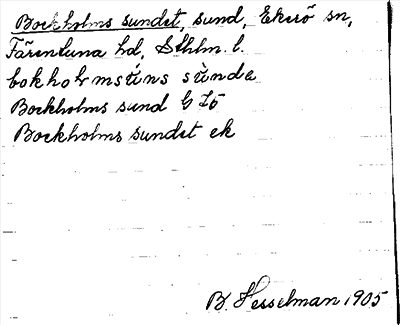 Bockholms sundet, sund, Ekerö sn,
Färentuna hd, Sthlm. l.
Bockholms sund G Jö
Bockholms sundet ek
B. Hesselman 1905